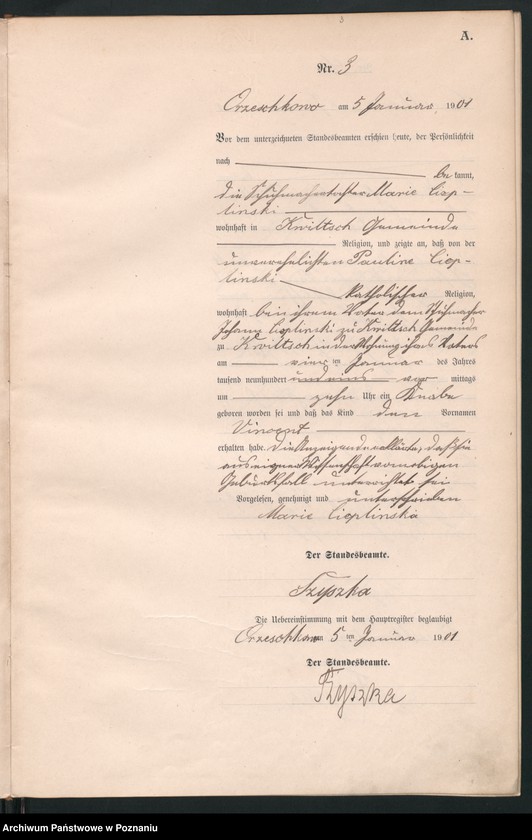 3
A.
Nr. 3
Orzeschkowo am 5 Januar 1901
Vor dem unterzeichneten Standesbeamten erschien heute, der Persönlichkeit
nach be kannt,
die Schuhmachertochter Marie Ciep-
linski
wohnhaft in Kwiltsch Gemeinde
Religion, und zeigte an, daß von der
unverehelichten Pauline Ciep-
linski
katholischer Religion,
wohnhaft bei ihrem Vater dem Schuhmacher
Johann Cieplinski zu Kwiltsch Gemeinde
zu Kwiltsch in der Wohnung ihres Vaters
am vier ten Januar des Jahres
tausend neunhundert und eins vor mittags
um zehn Uhr ein Knabe
geboren worden sei und daß das Kind den Vornamen
Vincent
erhalten habe. Die Anzeigende erklärte, daß sie
aus eigener Wissenschaft von obigen
Geburtsfall unterrichtet sei
Vorgelesen, genehmigt und unterschrieben
Marie Cieplinska
Der Standesbeamte.
Tzyszka
Die Uebereinstimmung mit dem Hauptregister beglaubigt
Orzeschkowo am 5 ten Januar 1901
Der Standesbeamte.
Tzyszka
Archiwum Państwowe w Poznaniu